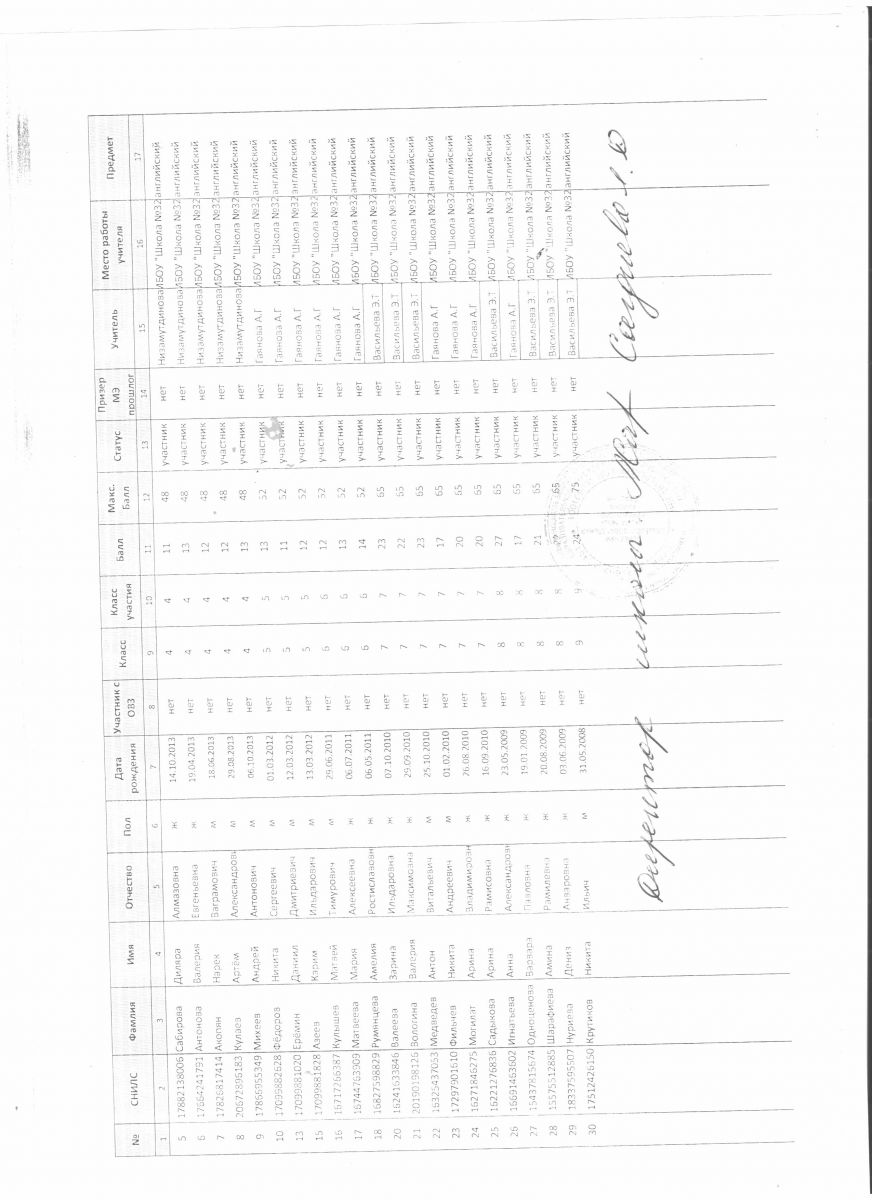 № СНИЛС Фамилия Имя Отчество Пол Дата рождения Участник с ОВЗ Класс Класс участия Балл Макс. Балл Статус Призер МЭ прошлог Учитель Место работы учителя Предмет
1 2 3 4 5 6 7 8 9 10 11 12 13 14 15 16 17
5 17882138006 Сабирова Диляра Алмазовна ж 14.10.2013 нет 4 4 11 48 участник нет Низамутдинова ИБОУ "Школа №32 английский
6 17664241791 Антонова Валерия Евгеньевна ж 19.04.2013 нет 4 4 13 48 участник нет Низамутдинова ИБОУ "Школа №32 английский
7 17826817414 Акопян Нарек Ваграмович м 18.06.2013 нет 4 4 12 48 участник нет Низамутдинова ИБОУ "Школа №32 английский
8 20672896183 Кулаев Артём Александрови м 29.08.2013 нет 4 4 12 48 участник нет Низамутдинова ИБОУ "Школа №32 английский
9 17866955349 Михеев Андрей Антонович м 06.10.2013 нет 4 4 13 48 участник нет Низамутдинова ИБОУ "Школа №32 английский
10 17099882628 Фёдоров Никита Сергеевич м 01.03.2012 нет 5 5 13 52 участник нет Гаянова А.Г ИБОУ "Школа №32 английский
13 17099881020 Ерёмин Даниил Дмитриевич м 12.03.2012 нет 5 5 11 52 участник нет Гаянова А.Г ИБОУ "Школа №32 английский
15 17099881828 Азеев Карим Ильдарович м 13.03.2012 нет 5 5 12 52 участник нет Гаянова А.Г ИБОУ "Школа №32 английский
16 16717266387 Кулышев Матвей Тимурович м 29.06.2011 нет 6 6 12 52 участник нет Гаянова А.Г ИБОУ "Школа №32 английский
17 16744763909 Матвеева Мария Алексеевна ж 06.07.2011 нет 6 6 13 52 участник нет Гаянова А.Г ИБОУ "Школа №32 английский
18 16827598829 Румянцева Амелия Ростиславовн ж 06.05.2011 нет 6 6 14 52 участник нет Гаянова А.Г ИБОУ "Школа №32 английский
20 16241633846 Валеева Зарина Ильдаровна ж 07.10.2010 нет 7 7 23 65 участник нет Васильева Э.Т ИБОУ "Школа №32 английский
21 20190198126 Вологина Валерия Максимовна ж 29.09.2010 нет 7 7 22 65 участник нет Васильева Э.Т ИБОУ "Школа №32 английский
22 16325437063 Медведев Антон Витальевич м 25.10.2010 нет 7 7 23 65 участник нет Васильева Э.Т ИБОУ "Школа №32 английский
23 17297901610 Фильчев Никита Андреевич м 01.02.2010 нет 7 7 17 65 участник нет Гаянова А.Г ИБОУ "Школа №32 английский
24 16271846275 Могилат Арина Владимировн ж 26.08.2010 нет 7 7 20 65 участник нет Гаянова А.Г ИБОУ "Школа №32 английский
25 16221276836 Садыкова Арина Рамисовна ж 16.09.2010 нет 7 7 20 65 участник нет Гаянова А.Г ИБОУ "Школа №32 английский
26 16691463602 Игнатьева Анна Александровн ж 23.05.2009 нет 8 8 27 65 участник нет Васильева Э.Т ИБОУ "Школа №32 английский
27 15437815674 Одноценова Варвара Павловна ж 19.01.2009 нет 8 8 17 65 участник нет Гаянова А.Г ИБОУ "Школа №32 английский
28 15575512885 Шарафиева Амина Рамилевна ж 20.08.2009 нет 8 8 21 65 участник нет Васильева Э.Т ИБОУ "Школа №32 английский
29 18337595107 Нуриева Дениз Анваровна ж 03.06.2009 нет 8 8 65 участник нет Васильева Э.Т ИБОУ "Школа №32 английский
30 17512426150 Крутиков Никита Ильич м 31.05.2008 нет 9 9 24 75 участник нет Васильева Э.Т ИБОУ "Школа №32 английский
Директор школы